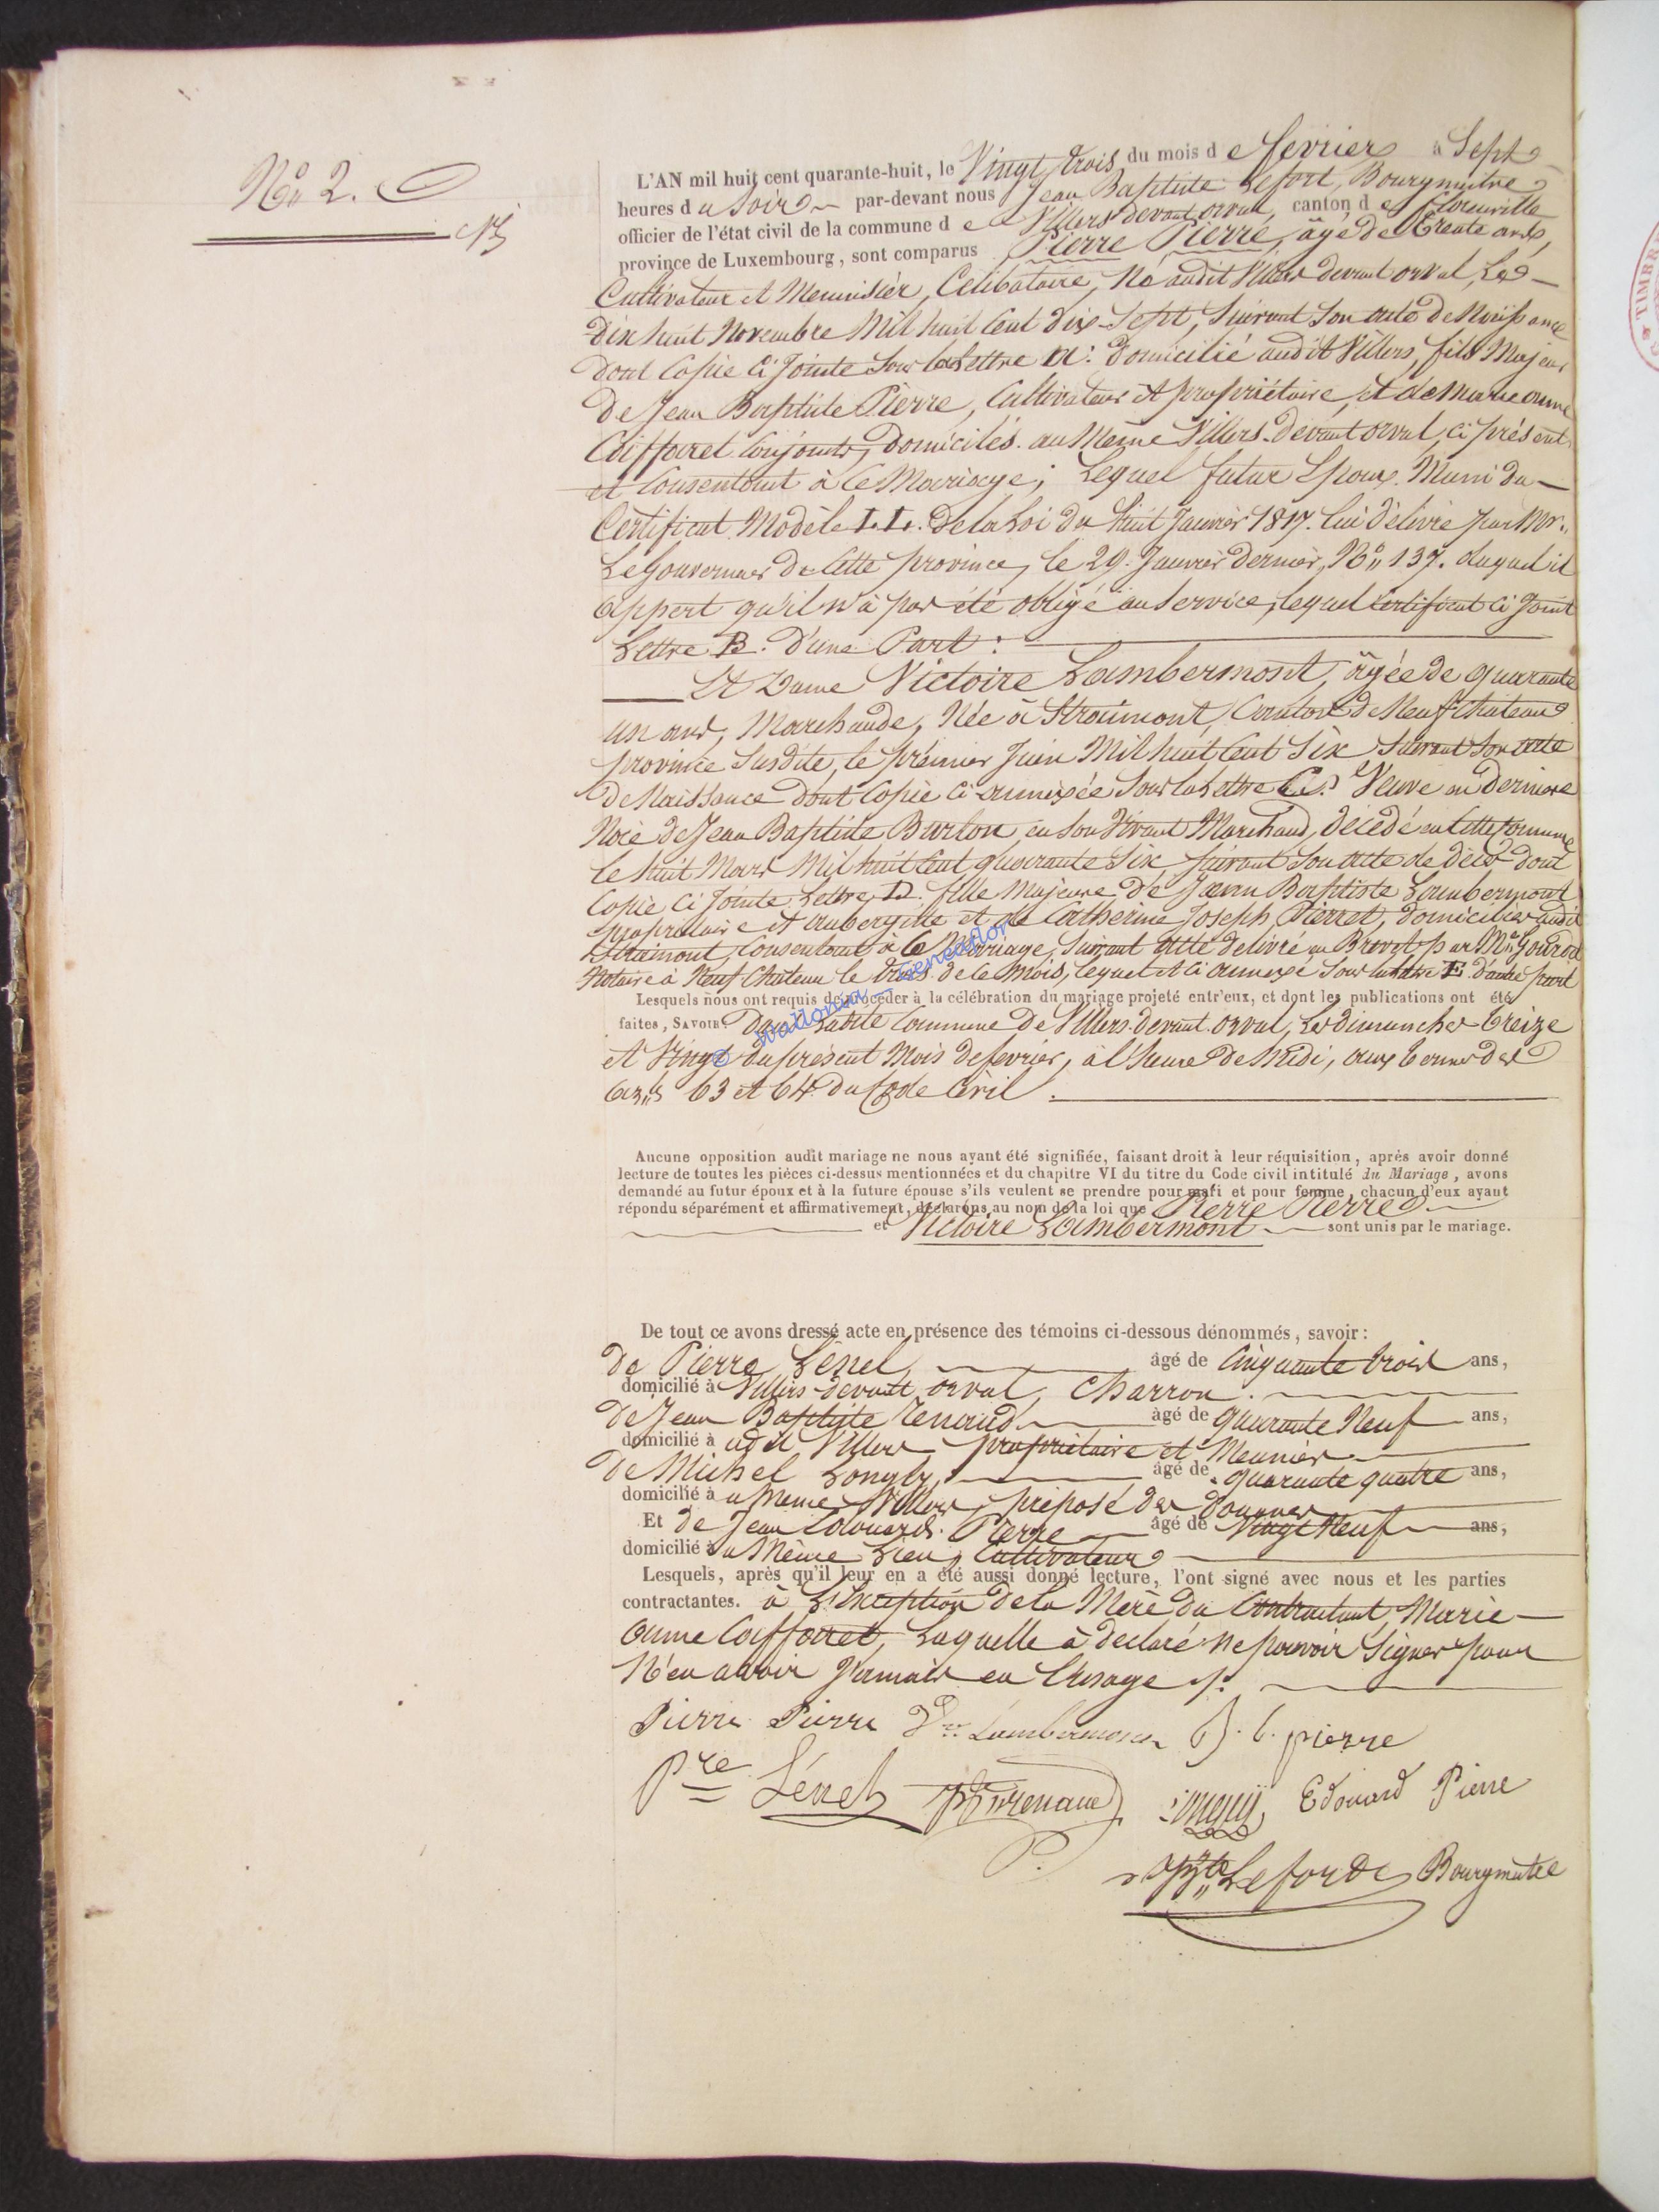 N° 2.
L'AN mil huit cent quarante-huit, le Vingt trois du mois de fevrier à Sept
heures du Soir par-devant nous Jean Baptiste Lefort, Bourgmaitre
officier de l'état civil de la commune de Villers devant orval, canton de florenville
province de Luxembourg, sont comparus Pierre Pierre, âgé de trente ans,
Cultivateur et Menuisier, Célibataire, Né audit Villers devant orval, Le
dix huit Novembre Mil huit Cent dix-Sept, Suivant Son acte de Naissance
dont Copie Ci Jointe Sous la Lettre A: domicilié audit Villers, fils Majeur
de Jean Baptiste Pierre, Cultivateur et propriétaire, et de Marie anne
Coiffaret Conjoints, Domiciliés au Même Villers-devant orval, Ci présents
et Consentant à Ce Mariage; Lequel futur Epoux Muni du
Certificat Modèle L.L. de la Loi du huit Janvier 1817. lui délivré par Mr.
Le Gouverneur de Cette province, le 29. Janvier dernier, N° 137. duquel il
appert qu'il n'à pas été obligé au Service, lequel Certificat Ci Joint
Lettre B. d'une Part:
Et Dame Victoire Lambermont, âgée de quarante
un ans, Marchande, Née à Straimont, Canton de Neufchateau
province Susdite, le prémier Juin Mil huit Cent Six Suivant Son acte
de Naissance dont Copie Ci annexée Sous la Lettre C. Veuve en derniere
Noce de Jean Baptiste Burlon en Son Vivant Marchand, décedé en Cette Commune
le huit Mars Mil huit Cent quarante Six Suivant Son acte de décès dont
Copie Ci Jointe Lettre D. fille Majeure de Jean Baptiste Lambermont
propriétaire et aubergiste et de Catherine Joseph Pierret, domiciliés audit
Straimont, Consentant à Ce Mariage, Suivant acte delivré en Brevet par Me
Notaire à Neuf-Chateau le trois de Ce Mois, lequel et Ci annexé Sous la lettre E d'autre part
Lesquels nous ont requis de procéder à la célébration du mariage projeté entr'eux, et dont les publications ont été
faites, SAVOIR: Dans Ladite Commune de Villers-devant-orval, Les dimanches treize
et Vingt du présent Mois de fevrier, à l'heure de Midi, aux termes des
63 et 64 du Code Civil.
Aucune opposition audit mariage ne nous ayant été signifiée, faisant droit à leur réquisition, après avoir donné
lecture de toutes les pièces ci-dessus mentionnées et du chapitre VI du titre du Code civil intitulé du Mariage, avons
demandé au futur époux et à la future épouse s'ils veulent se prendre pour mari et pour femme, chacun d'eux ayant
répondu séparément et affirmativement, déclarons au nom de la loi que Pierre Pierre
et Victoire Lambermont sont unis par le mariage.
De tout ce avons dressé acte en présence des témoins ci-dessous dénommés, savoir:
De Pierre Lénel âgé de Cinquante trois ans,
domicilié à Villers-devant orval, Charron.
De Jean Baptiste Renaud âgé de quarante Neuf ans,
domicilié audit Villers propriétaire et Meunier
De Michel Longly, âgé de quarante quatre ans,
domicilié au Meme Villers, préposé des douanes
Et de Jean Edouard Pierre âgé de Vingt Neuf ans,
domicilié au Même Lieu, Cultivateur
Lesquels, après qu'il leur en a été aussi donné lecture, l'ont signé avec nous et les parties
contractantes. à L'exception de la Mere du Contractant, Marie
anne Coiffaret, Laquelle à declaré Ne pouvoir Signer pour
N'en avoir Jamais eu l'usage
Pierre Pierre Vre Lambermont J. b. pierre
Pre Lénel Renaud Edouard Pierre
Lefort Bourgmaitre
wallonia - geneanor
TIMBRE